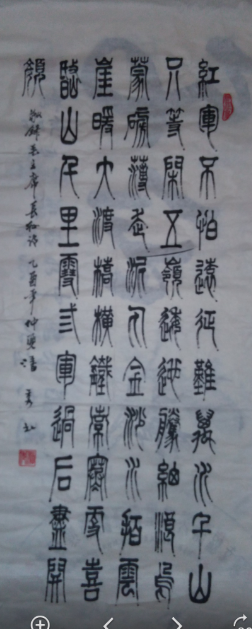 紅軍不怕遠征難萬水千山
只等閑五嶺逶迤騰細浪烏
蒙磅礴走泥丸金沙水拍雲
崖暖大渡橋橫鐵索寒更喜
岷山千里雪弎軍過后盡開
顏 錄毛主席長征詩 乙酉年仲夏